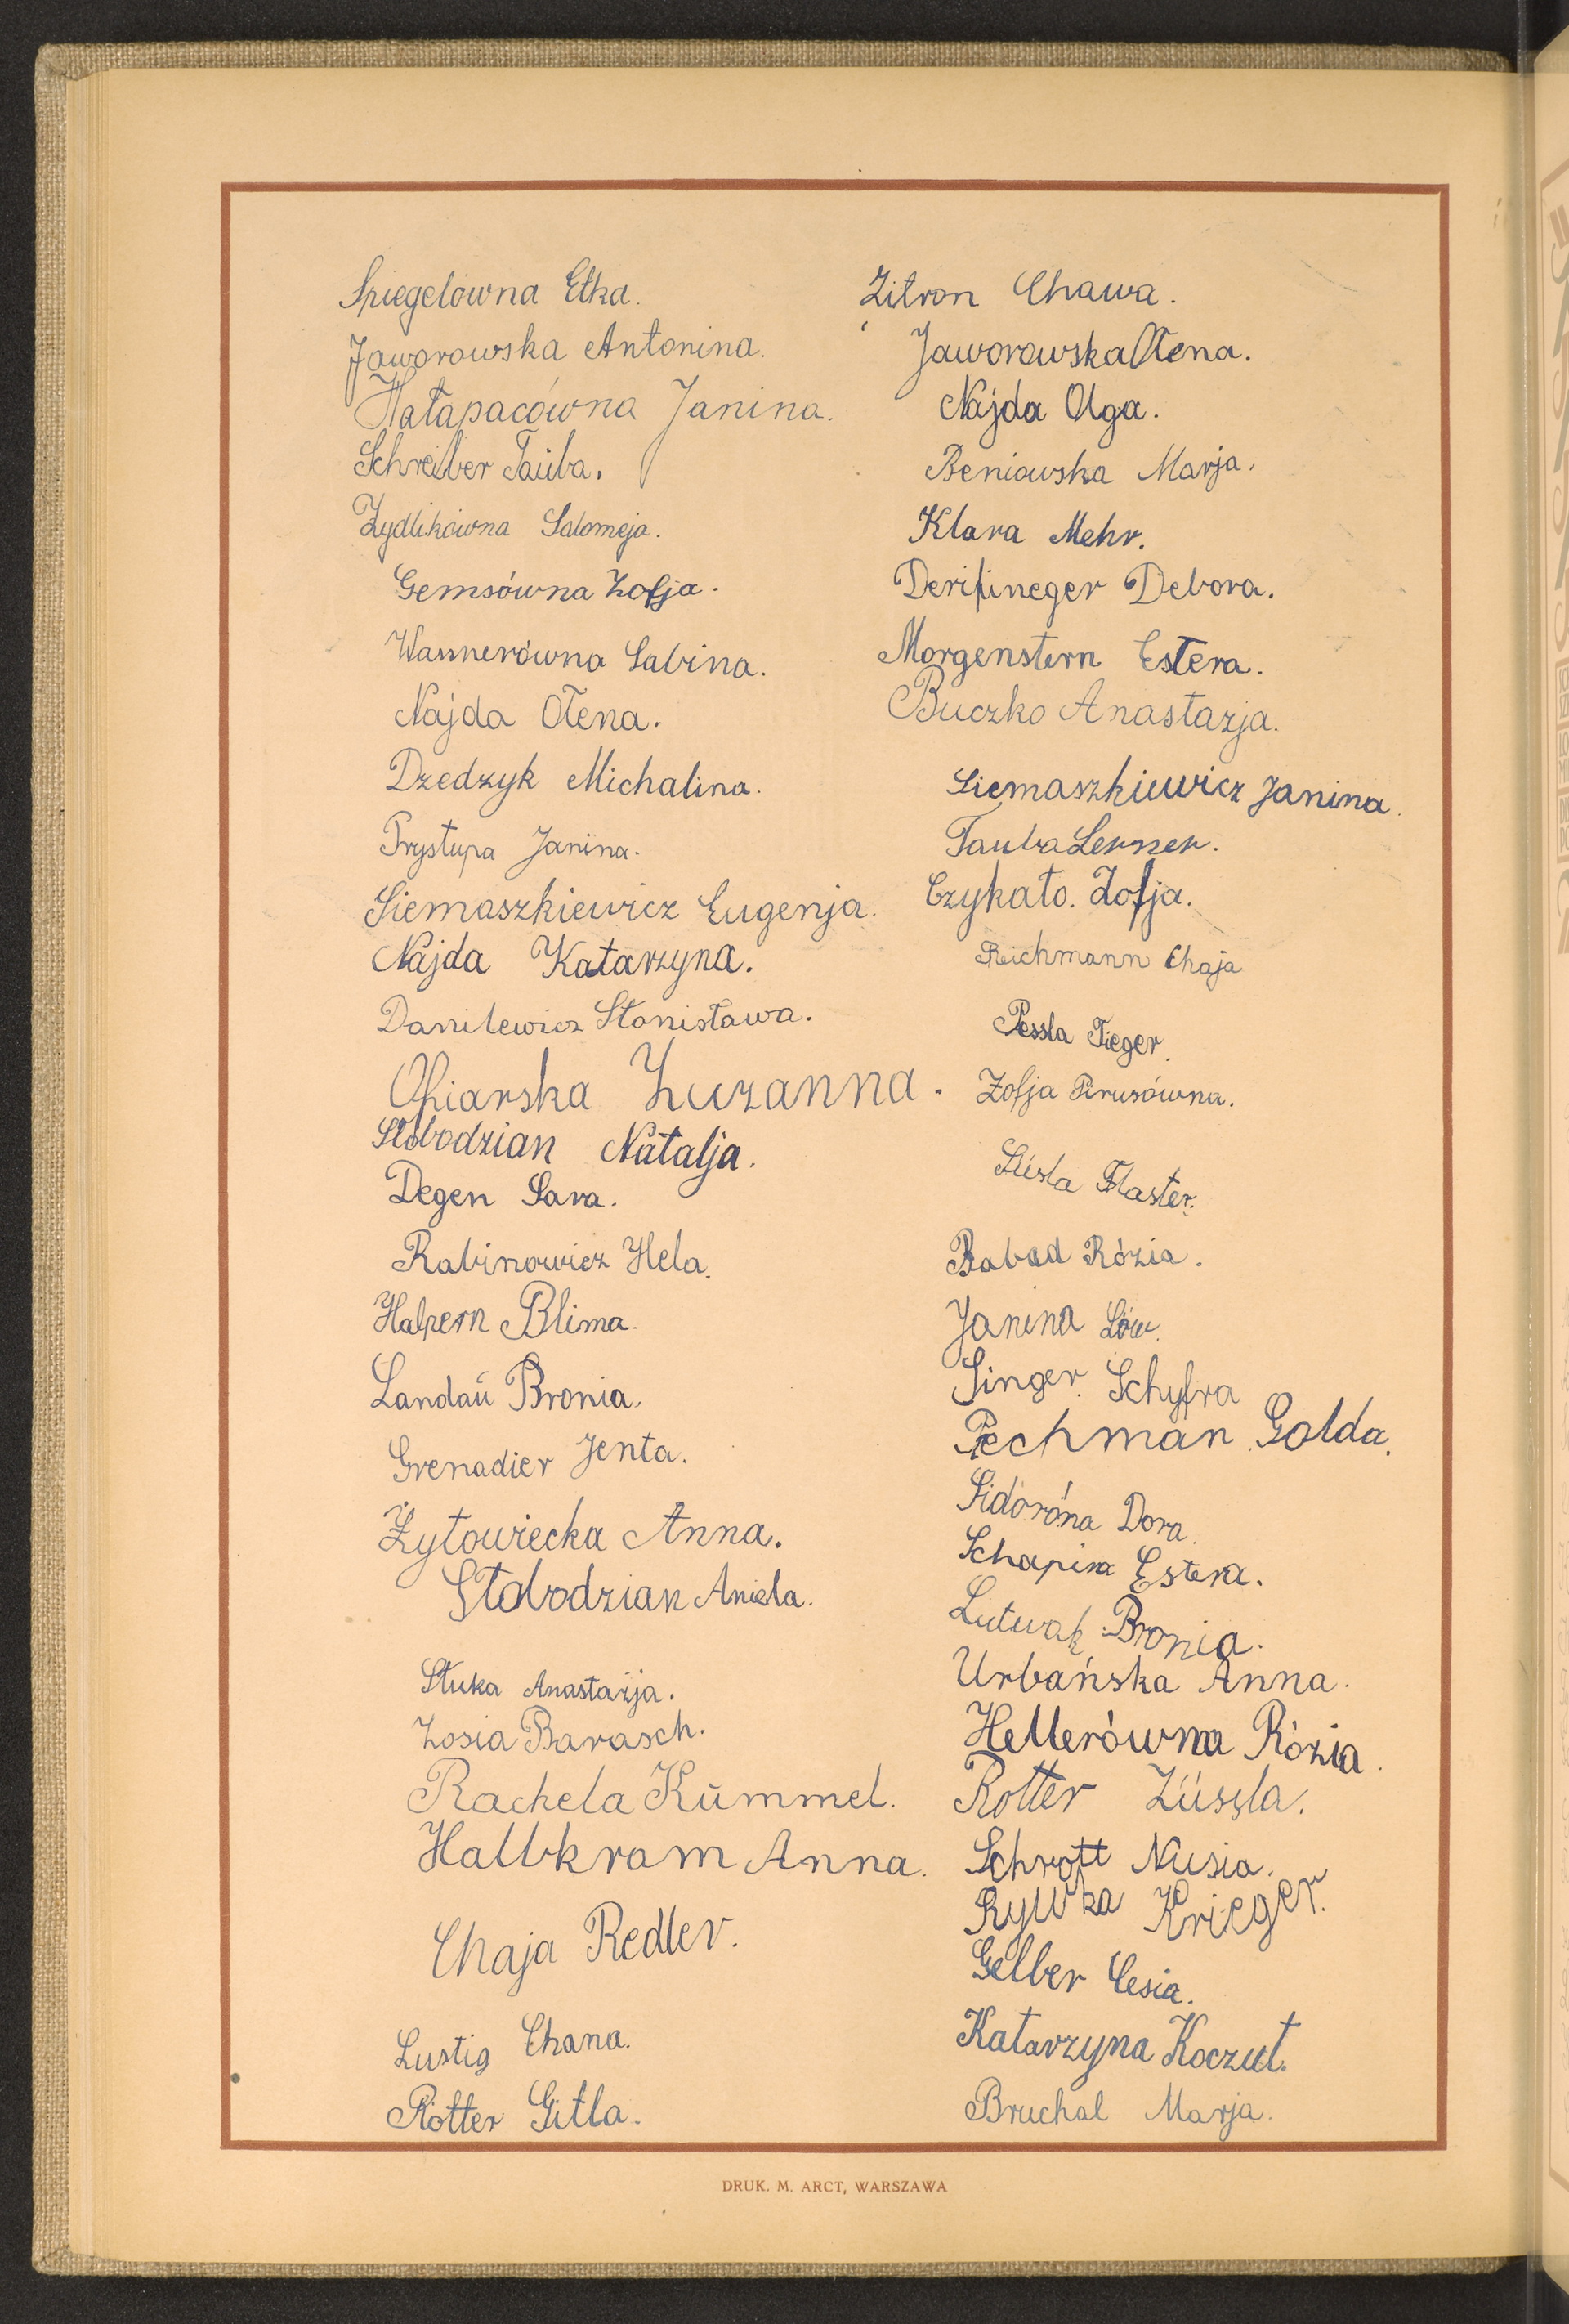 Spiegelówna Etka.
Jaworowska Antonina.
Hałapacówna Janina.
Schreiber Taūba.
Zydlikówna Salomeja.
Gemsówna Zofja.
Wassnerówna Sabina.
Najda Ołena.
Dzedzyk Michalina.
Prystupa Janina.
Siemaszkiewicz Eugenja.
Najda Katarzyna.
Danilewicz Stanisława.
Ofiarska Zuzanna.
Słobodzian Natalja.
Degen Sara.
Rabinowicz Hela.
Halpern Blima.
Landaū Bronia.
Grenadier Jenta.
Żytowiecka Anna.
Słobodzian Aniela.
Słuka Anastazja.
Zosia Barasch.
Rachela Kūmmel.
Halbkram Anna.
Chaja Redler.
Lustig Chana.
Rotter Gitla.
Zitron Chawa.
Jaworowska Ołena.
Najda Olga.
Beniowska Marja.
Klara Mehr.
Debora.
Morgenstern Estera.
Buczko Anastazja.
Siemaszkiewicz Janina.
Tauba Lerner.
Czykało. Zofja.
Reichmann Chaja
Pessla Tieger.
Zofja Pirusówna.
Flaster.
Babad Rózia.
Janina Löw.
Singer. Schyfra
Pechman Golda.
Sidoróna Dora.
Schapira Estera.
Lutwak Bronia.
Urbańska Anna.
Hellerówna Rózia.
Rotter Züssla.
Schrott Nusia.
Rywka Krieger.
Gelber Cesia.
Katarzyna Koczut.
Bruchal Marja.
DRUK. M. ARCT, WARSZAWA